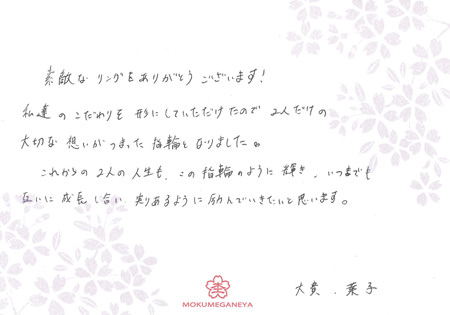 素敵なリングをありがとうございます!
私達のこだわりを形にしていただけたので2人だけの
大切な想いがつまった指輪となりました。
これからの2人の人生も、この指輪のように輝き、いつまでも
互いに成長し合い実りあるように励んでいきたいと思います。
大貴、葉子
MOKUMEGANEYA